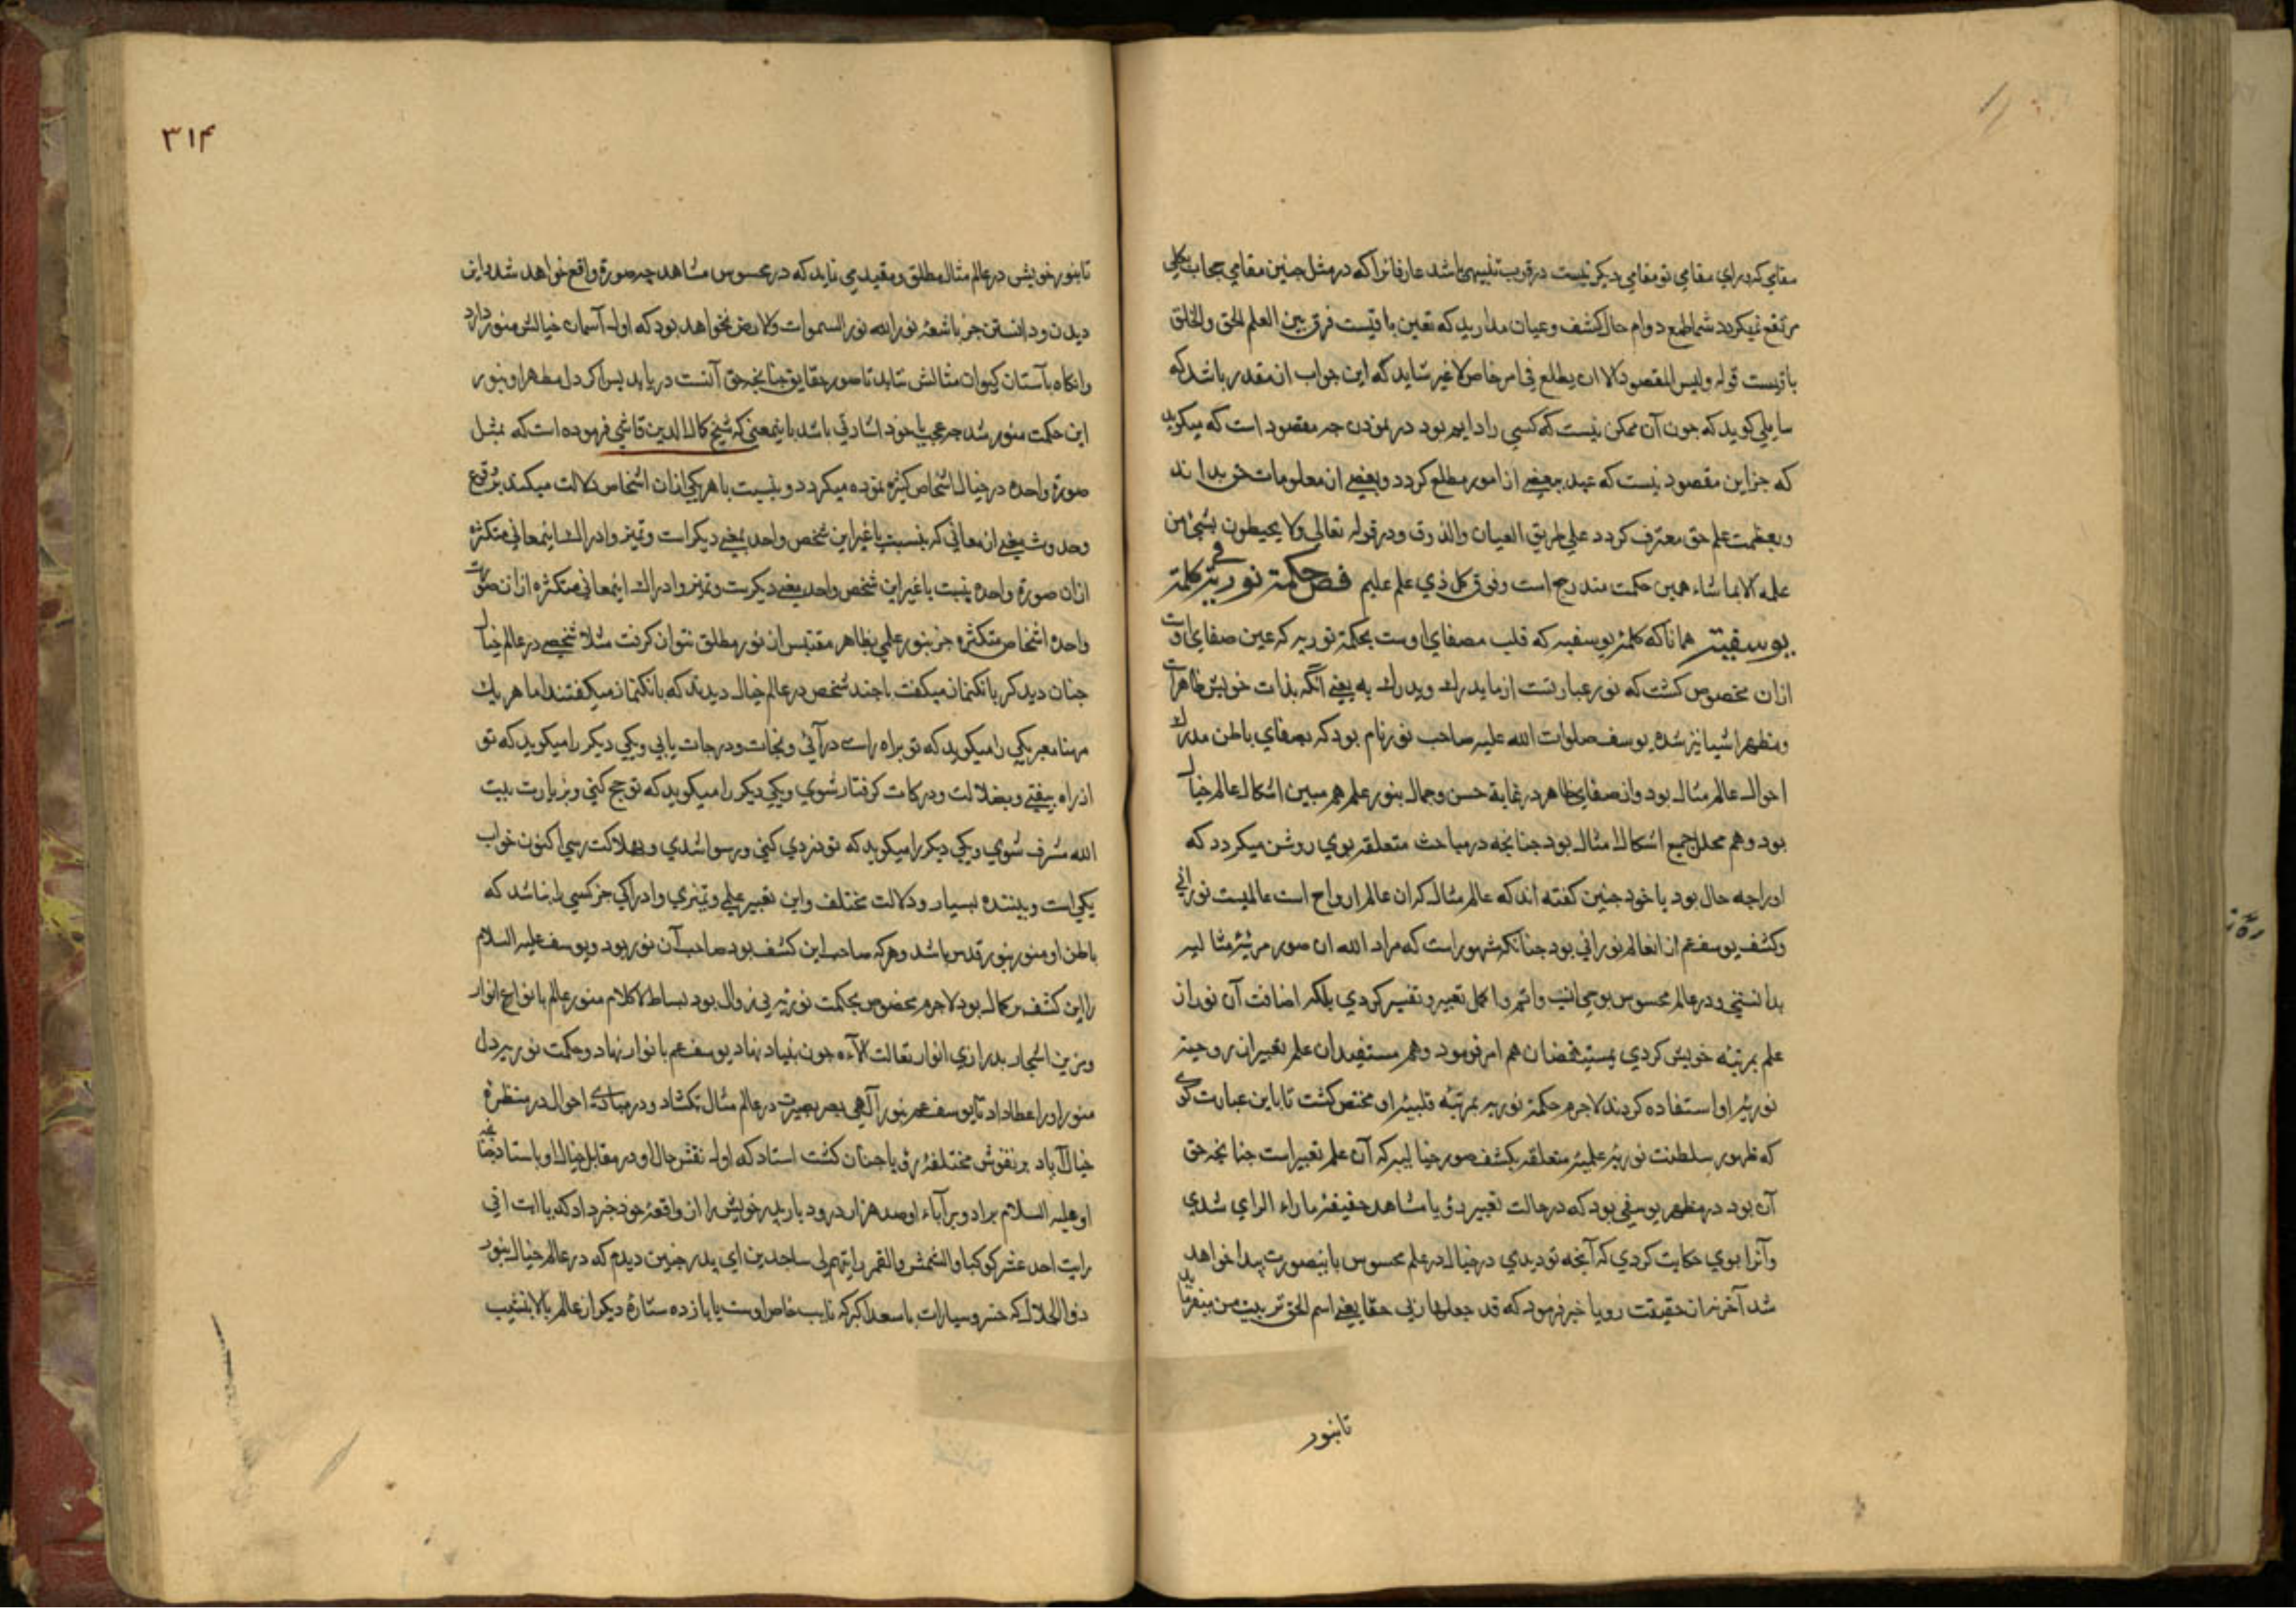 مقامی که ورای مقامی تو مقامی دیکر نیست درقرب تنبیهی باشد عارفانرا که درمثل چنین مقامی حجاب بکلی
مرتفع نمیکردد شما طمع دوام حال کشف وعیان مدارید که تعین باقیست فرق بین العلم الحق والخلق
باقیست قوله ولیس المقصود الا ان یطلع فی امر خاص لا غیر شاید که این جواب ان مقدر باشد که
سایلی کوید که جون آن ممکن نیست که کسی را دایم بود در نمودن جه مقصود است که میکوید
که جز این مقصود نیست که عبد ببعضی از امور مطلع کردد وبعضی از معلومات حق بداند
وبعظمت علم حق معترف کردد علی طریق العیان والذوق ودرقوله تعالی ولا یحیطون بشیء من
علمه الا بما شاء همین حکمت مندرج است وفوق کل ذی علم علیم فص حکمة نوریة فی کلمة
یوسفیة همانا که کلمهٔ یوسفیه که قلب مصفای اوست بحکمة نوریه که عین صفای اوست
ازان مخصوص کشت که نور عبارتست از ما یدرك ویدرك به یعنی آنکه بذات خویش ظاهر است
ومظهر اشیا نیز شده یوسف صلوات الله علیه صاحب نور تام بود که بصفای باطن مدرك
احوال عالم مثال بود واز صفای ظاهر درغایة حسن وجمال بنور علم هم مبین اشکال عالم خیال
بود وهم محلل جمیع اشکال امثال بود جنانجه درمباحث متعلقه بوی روشن میکردد که
اورا جه حال بود یا خود جنین کفته اند که عالم مثال کران عالم ارواح است عالمیست نورانی
وکشف یوسف عم ازانعالم نورانی بود جنانکه مشهور است که مراد الله از صور مرئیهٔ مثالیه
بدانستی ودرعالم محسوس بوجهی واتم واکمل تعبیر وتفسیر کردی بلکه اضافت آن نور از
علم بمرتبهٔ خویش کردی بمستفیضان هم امر فرمود وهم مستفیدان علم تعبیر از روحیة
نوریهٔ او استفاده کردند لاجرم حکمة نوریه بمرتبهٔ قلبیهٔ او مختص کشت تا باین عبارت کوی
که ظهور سلطنت نوریهٔ علمیهٔ متعلقه بکشف صور خیالیه که آن علم تعبیر است جنانجه حق
آن بود درمظهر یوسفی بود که درحالت تعبیر رؤیا مشاهد حقیقة ما راه الرای شدی
وآنرا بوی حکایت کردی که آنجه تو دیدی درخیال درعلم محسوس باینصورت پیدا خواهد
شد آخر نه از حقیقت رویا خبر فرمود که قد جعلها ربی حقا یعنی اسم الحق تربیت من میفرماید
تابنور
٣١۴
تا بنور خویش درعالم مثال مطلق ومقید می نماید که درمحسوس مشاهد جه صورة واقع خواهد شد واین
دیدن ودانستن جز باشعهٔ نور الله نور السموات والارض نخواهد بود که اول آسمان خیالش منور دارد
وانکاه بآستان کیوان مثالش نماید تا صور حقایق جنانجه حق آنست دریابد پس اکر دل مطهر او بنور
این حکمت منور شد جه عجب یا خود اشارتی باشد باینمعنی که شیخ کمال الدین قاشی فرموده است که بمثل
صورة واحده درخیال اشخاص کثیره نموده میکردد وبنسبت با هر یکی ازان اشخاص دلالت میکند بر وقوع
وحدوث معنی از معانی که بنسبت با غیر این شخص واحد بمعنی دیکر است وتمیز وادراك اینمعانی متکثره
ازان صورة واحده بنسبت با غیر این شخص واحد بمعنی دیکرست وتمیز وادراك اینمعانی متکثره ازان صورت
واحده اشخاص متکثره جز بنور علمی بظاهر مقتبس از نور مطلق نتوان کرفت مثلا شخصی درعالم خیال
جنان دید که بانك نماز میکفت یا جند شخص درعالم خیال دیدند که بانك نماز میکفتند اما هر یك
مرینا معبر یکی را میکوید که تو براه راست درآئی ونجات ودرجات یابی ویکی دیکر را میکوید که تو
از راه بیفتی وبضلالت ودرکات کرفتار شوی ویکی دیکر را میکوید که تو حج کنی وبزیارت بیت
الله مشرف شوی ویکی دیکر را میکوید که تو دزدی کنی ورسوا شدی وبهلاکت رسی اکنون خواب
یکی است وبیننده بسیار ودلالت مختلف واین تعبیر علمی وتمیزی وادراکی جز کسی را نباشد که
باطن او منور بنور قدس باشد وهرکه صاحب این کشف بود صاحب آن نور بود ویوسف علیه السلام
را این کشف بر کمال بود لاجرم مخصوص بحکمت نوریه بی زوال بود بساط الاکلام منور عالم بانواع انوار
ومزین اشجار بدراری انوار تعالت آلاءه جون بنیاد نهاد یوسف عم بانوار نهاد وحکمت نوریه دل
منور اورا عطا داد تا یوسف عم بنور آلهی بصر بصیرت درعالم مثال بکشاد ودرمبادی احوال درمنظرهٔ
خیال آباد برنقوش مختلفهٔ رؤیا جنان کشت استاد که اول نقش حال او درمقابل خیال او باستاد جنانجه
او علیه السلام برادر وبرآباء او صد هزار درود باد پدر خویش را از واقعهٔ خود خبر داد که یا ابت انی
رایت احد عشر کوکبا والشمس والقمر رایتهم لی ساجدین ای پدر جنین دیدم که درعالم خیال بنور
ذو الجلال که خسرو سیارات با سعد اکبر که نایب خاص اوست با یازده ستارهٔ دیکر از عالم بالا بنشیب